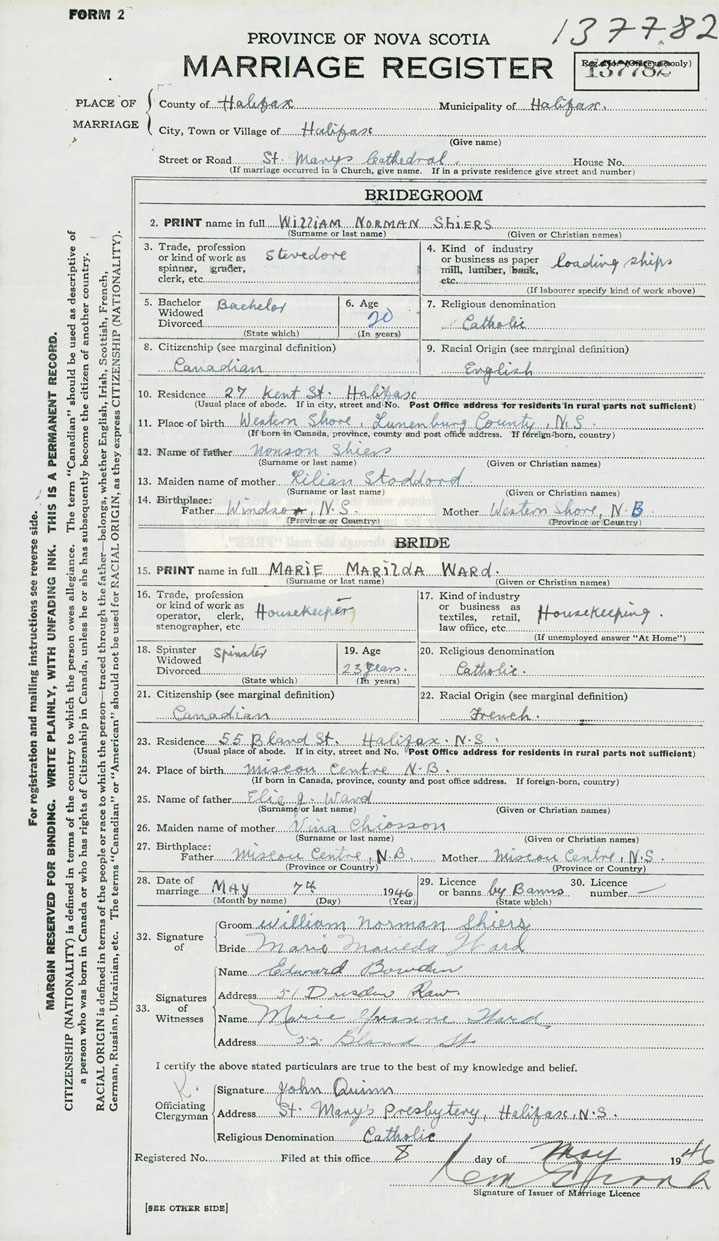 FORM 2
137782
PROVINCE OF NOVA SCOTIA
MARRIAGE REGISTER
Reg. No. (Office use only)
137782
PLACE OF MARRIAGE
County of Halifax Municipality of Halifax.
City, Town or Village of Halifax
(Give name)
Street or Road St. Marys Cathedral. House No.
(If marriage occurred in a Church, give name. If in a private residence give street and number)
BRIDEGROOM
2. PRINT name in full WILLIAM NORMAN SHIERS
(Surname or last name) (Given or Christian names)
3. Trade, profession or kind of work as spinner, grader, clerk, etc. Stevedore
4. Kind of industry or business as paper mill, lumber, bank, etc. loading ships
(If labourer specify kind of work above)
5. Bachelor Widowed Divorced Bachelor
(State which)
6. Age 20
(In years)
7. Religious denomination
Catholic
8. Citizenship (see marginal definition)
Canadian
9. Racial Origin (see marginal definition)
English
10. Residence 27 Kent St. Halifax
(Usual place of abode. If in city, street and No. Post Office address for residents in rural parts not sufficient)
11. Place of birth Western Shore, Lunenburg County, N.S.
(If born in Canada, province, county and post office address. If foreign-born, country)
12. Name of father Shiers
(Surname or last name) (Given or Christian names)
13. Maiden name of mother Lilian Stoddord
(Surname or last name) (Given or Christian names)
14. Birthplace: Father Windsor, N.S. Mother Western Shore, N.B
(Province or Country) (Province or Country)
BRIDE
15. PRINT name in full MARIE MARILDA WARD.
(Surname or last name) (Given or Christian names)
16. Trade, profession or kind of work as operator, clerk, stenographer, etc. Housekeeper
17. Kind of industry or business as textiles, retail, law office, etc. Housekeeping.
(If unemployed answer "At Home")
18. Spinster Widowed Divorced Spinster
(State which)
19. Age
23 years.
(In years)
20. Religious denomination
Catholic.
21. Citizenship (see marginal definition)
Canadian
22. Racial Origin (see marginal definition)
French.
23. Residence 55 Bland St. Halifax. N.S.
(Usual place of abode. If in city, street and No. Post Office address for residents in rural parts not sufficient)
24. Place of birth Miscou Centre N.B.
(If born in Canada, province, county and post office address. If foreign-born, country)
25. Name of father Elie J. Ward
(Surname or last name) (Given or Christian names)
26. Maiden name of mother Vina Chiosson
(Surname or last name) (Given or Christian names)
27. Birthplace: Father Miscou Centre, N.B. Mother Miscou Centre, N.S.
(Province or Country) (Province or Country)
28. Date of marriage MAY 7th 1946
(Month by name) (Day) (Year)
29. Licence or banns by Banns
(State which)
30. Licence number —
32. Signature of
Groom William Norman Shiers
Bride Marie Ward
33. Signatures of Witnesses
Name Edward Bowden
Address 51 Row.
Name Marie Yvonne Ward
Address Bland St
I certify the above stated particulars are true to the best of my knowledge and belief.
Officiating Clergyman
Signature John Quinn
Address St. Mary's Presbytery, Halifax, N.S.
Religious Denomination Catholic
Registered No. Filed at this office 8 day of May 1946
Signature of Issuer of Marriage Licence
[SEE OTHER SIDE]
For registration and mailing instructions see reverse side.
MARGIN RESERVED FOR BINDING. WRITE PLAINLY, WITH UNFADING INK. THIS IS A PERMANENT RECORD.
CITIZENSHIP (NATIONALITY) is defined in terms of the country to which the person owes allegiance. The term "Canadian" should be used as descriptive of
a person who was born in Canada or who has rights of Citizenship in Canada, unless he or she has subsequently become the citizen of another country.
RACIAL ORIGIN is defined in terms of the people or race to which the person—traced through the father—belongs, whether English, Irish, Scottish, French,
German, Russian, Ukrainian, etc. The terms "Canadian" or "American" should not be used for RACIAL ORIGIN, as they express CITIZENSHIP (NATIONALITY).